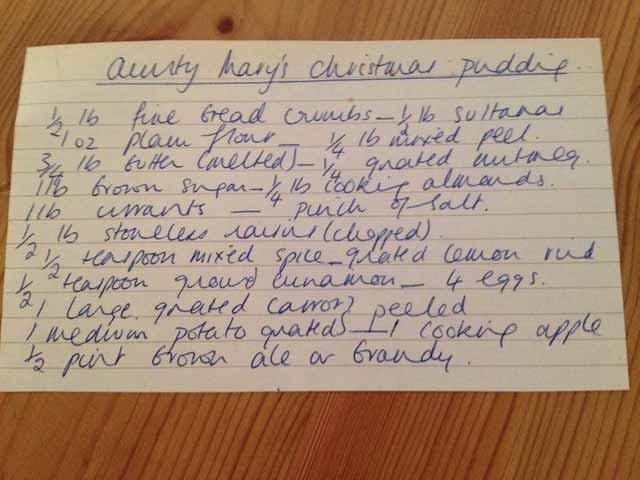 Aunty Mary's Christmas pudding.
1/2 lb fine bread crumbs – 1/2 lb sultanas
1 oz plain flour – 1/4 lb mixed peel.
3/4 lb butter (melted) – 1/4 grated nutmeg.
1 lb brown sugar – 1/4 lb cooking almonds.
1 lb currants – pinch of salt.
1/2 lb stoneless raisins (chopped).
1/2 teaspoon mixed spice – grated lemon rind
1/2 teaspoon ground cinnamon – 4 eggs.
1 large grated carrot peeled
1 medium potato grated – 1 cooking apple
1/2 pint brown ale or brandy.